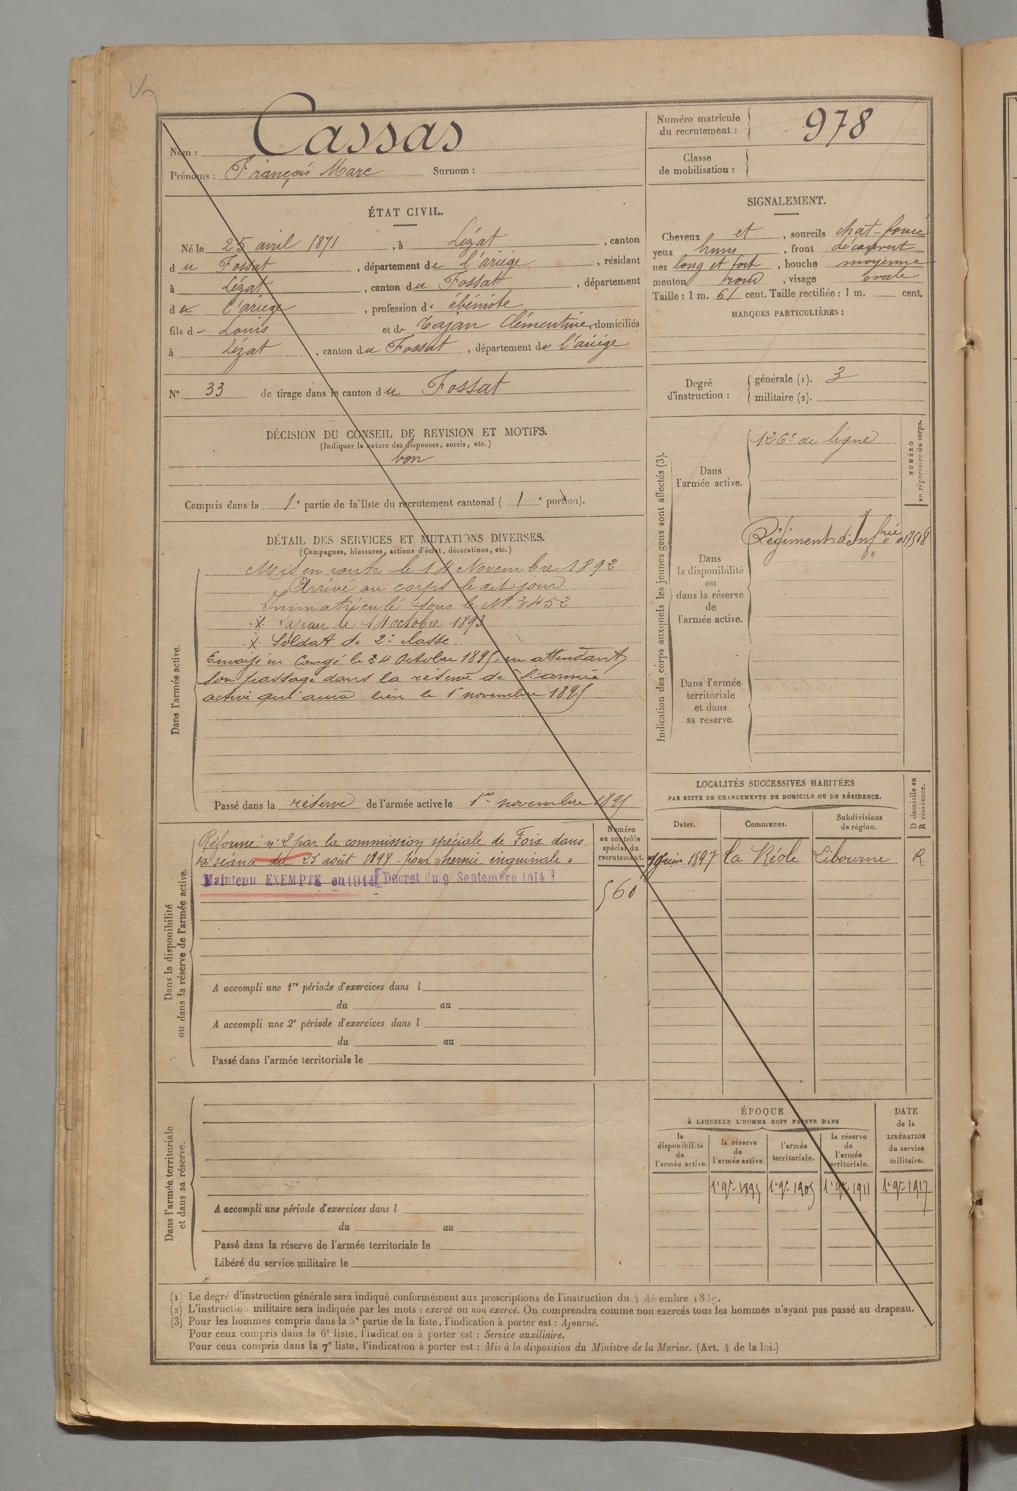 Nom : Cassas
Prénoms : François Marc Surnom :
Numéro matricule du recrutement : 978
Classe de mobilisation :
ÉTAT CIVIL.
Né le 25 avril 1871, à Lézat, canton
du Fossat, département de l'ariège, résidant
à Lézat, canton du Fossat, département
de l'ariège, profession d' ébéniste
fils de Louis et de Tajan Clémentine, domiciliés
à Lézat, canton du Fossat, département de l'ariège
N° 33 de tirage dans le canton du Fossat
SIGNALEMENT.
Cheveux et, sourcils chat-foncé
yeux bruns, front découvert
nez long et fort, bouche moyenne
menton rond, visage ovale
Taille : 1 m. 61 cent. Taille rectifiée : 1 m. cent.
MARQUES PARTICULIÈRES :
Degré d'instruction : générale (1). 3
militaire (2).
DÉCISION DU CONSEIL DE REVISION ET MOTIFS.
(Indiquer la nature des dispenses, sursis, etc.)
bon
Compris dans la 1e partie de la liste du recrutement cantonal ( 1e portion).
DÉTAIL DES SERVICES ET MUTATIONS DIVERSES.
(Campagnes, blessures, actions d'éclat, décorations, etc.)
Dans l'armée active.
Mis en route le 14 Novembre 1892
Arrivé au corps le dit jour
Immatriculé sous le N° 3452
Sapeur le 14 octobre 1893
Soldat de 2e classe
Envoyé en Congé le 24 Octobre 1895, en attendant
son passage dans la réserve de l'armée
active qui aura lieu le 1er novembre 1895
Passé dans la réserve de l'armée active le 1er novembre 1895
Indication des corps auxquels les jeunes gens sont affectés (3).
NUMÉRO au répertoire du corps.
Dans l'armée active.
126e de ligne
Dans la disponibilité ou dans la réserve de l'armée active.
Régiment d'Infrie
Dans l'armée territoriale et dans sa réserve.
Dans la disponibilité ou dans la réserve de l'armée active.
Réformé n° 2 par la commission spéciale de Foix dans
sa séance du 25 août 1898 - pour "hernie inguinale"
Maintenu EXEMPTÉ en 1914 [Décret du 9 Septembre 1914]
Numéro au contrôle spécial du recrutement.
560
A accompli une 1re période d'exercices dans l
du au
A accompli une 2e période d'exercices dans l
du au
Passé dans l'armée territoriale le
LOCALITÉS SUCCESSIVES HABITÉES
PAR SUITE DE CHANGEMENTS DE DOMICILE OU DE RÉSIDENCE.
D domicile ou R résidence.
Dates. Communes. Subdivisions de région.
juin 1897 La Réole Libourne R
Dans l'armée territoriale et dans sa réserve.
A accompli une période d'exercices dans l
du au
Passé dans la réserve de l'armée territoriale le
Libéré du service militaire le
ÉPOQUE
À LAQUELLE L'HOMME DOIT PASSER DANS
la disponibilité de l'armée active.
la réserve de l'armée active.
l'armée territoriale.
la réserve de l'armée territoriale.
DATE de la LIBÉRATION du service militaire.
1er 9bre 1895 1er 9bre 1905 1er 9bre 1911 1er 9bre 1917
(1) Le degré d'instruction générale sera indiqué conformément aux prescriptions de l'instruction du 4 décembre 1889.
(2) L'instruction militaire sera indiquée par les mots : exercé ou non exercé. On comprendra comme non exercés tous les hommes n'ayant pas passé au drapeau.
(3) Pour les hommes compris dans la 5e partie de la liste, l'indication à porter est : Ajourné.
Pour ceux compris dans la 6e liste, l'indication à porter est : Service auxiliaire.
Pour ceux compris dans la 7e liste, l'indication à porter est : Mis à la disposition du Ministre de la Marine. (Art. 4 de la loi.)